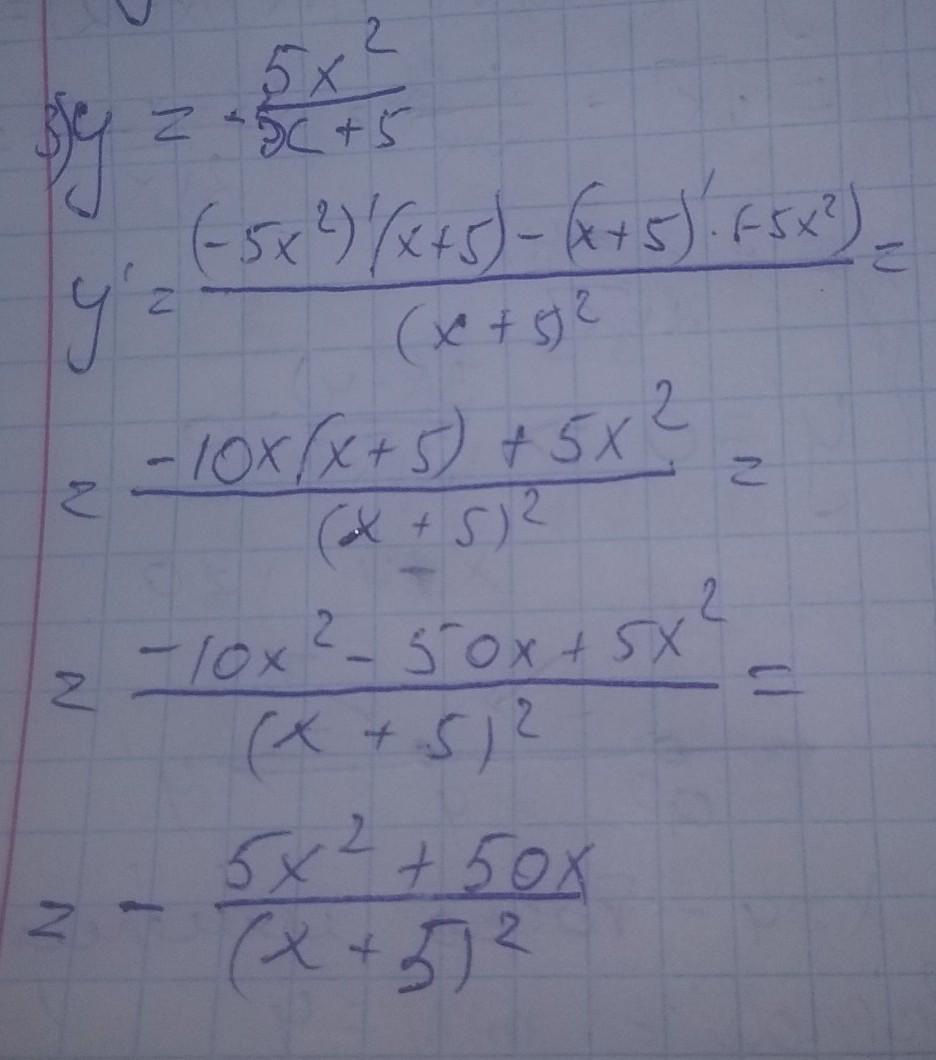 3) y = - 5x² / x + 5
y' = (-5x²)'(x+5) - (x+5)' · (-5x²) / (x + 5)² =
= -10x(x+5) + 5x² / (x + 5)² =
= -10x² - 50x + 5x² / (x + 5)² =
= - 5x² + 50x / (x + 5)²